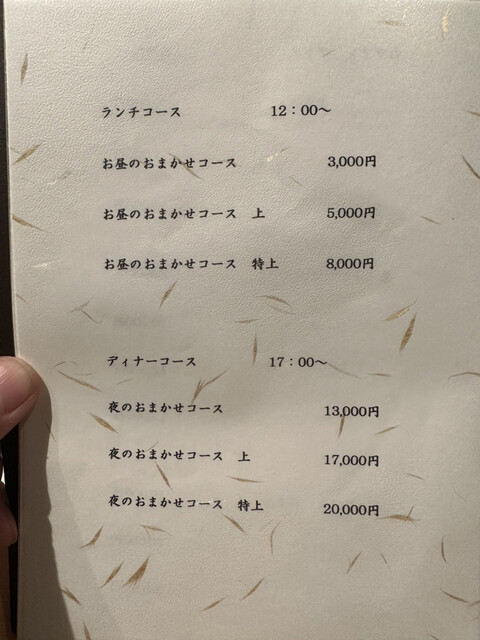 ランチコース 12：00～
お昼のおまかせコース 3,000円
お昼のおまかせコース 上 5,000円
お昼のおまかせコース 特上 8,000円
ディナーコース 17：00～
夜のおまかせコース 13,000円
夜のおまかせコース 上 17,000円
夜のおまかせコース 特上 20,000円